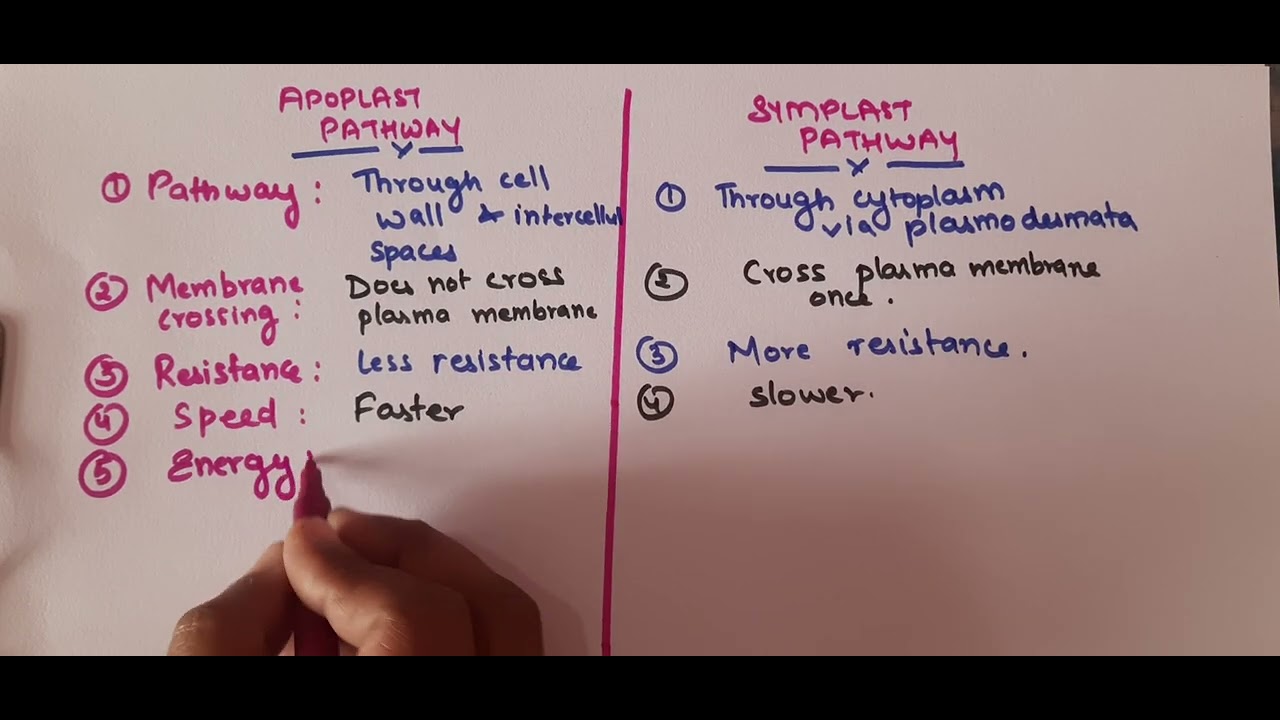 APOPLAST
PATHWAY
① Pathway : Through cell
wall & intercellul
spaces
② Membrane crossing : Does not cross
plasma membrane
③ Resistance : Less resistance
④ Speed : Faster
⑤ Energy :
SYMPLAST
PATHWAY
① Through cytoplasm
via plasmodesmata
② Cross plasma membrane
once.
③ More resistance.
④ slower.